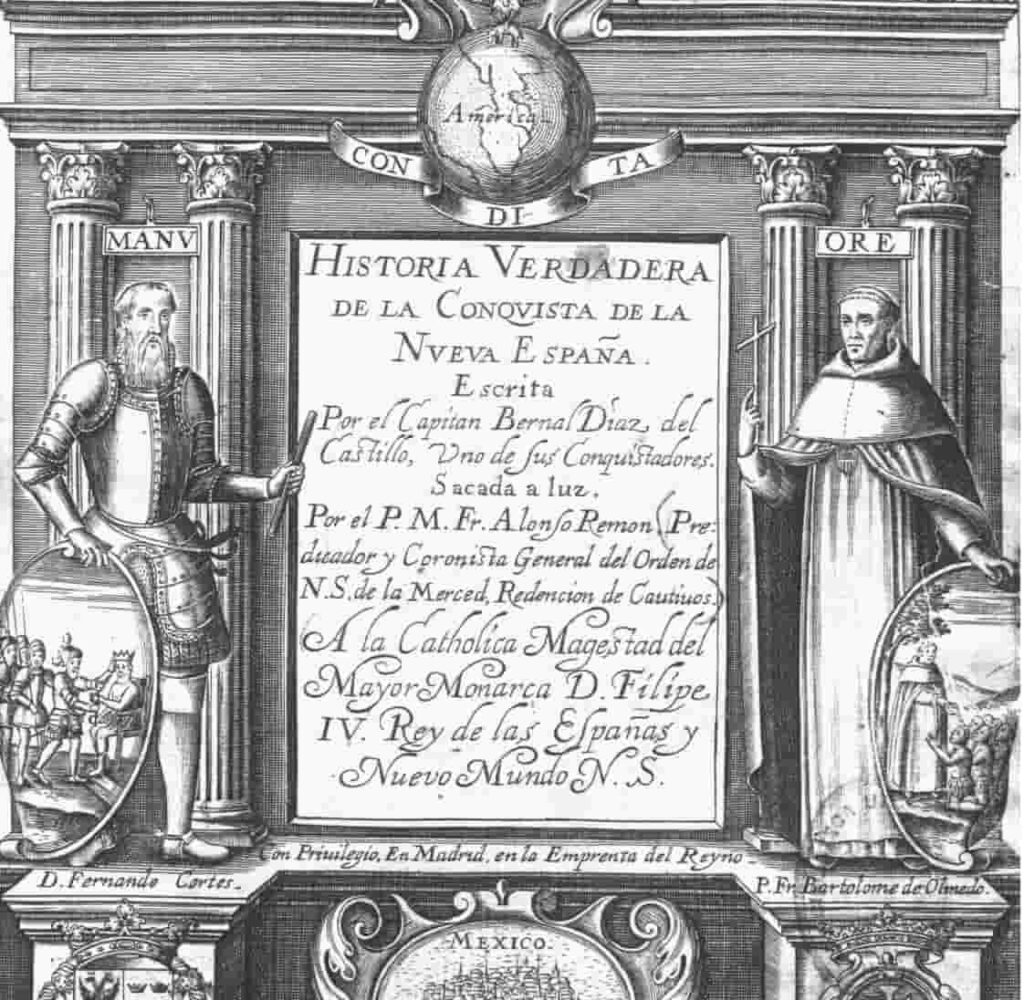 America
CON DI- TA
MANV
ORE
HISTORIA VERDADERA
DE LA CONQVISTA DE LA
NVEVA ESPAÑA.
Escrita
Por el Capitan Bernal Diaz, del
Castillo, Vno de sus Conquistadores.
Sacada a luz,
Por el P. M. Fr. Alonso Remon, Pre-
dicador y Coronista General del Orden de
N. S. de la Merced, Redencion de Cautiuos.
A la Catholica Magestad del
Mayor Monarca D. Filipe
IV. Rey de las Españas y
Nuevo Mundo N. S.
Con Priuilegio, En Madrid, en la Emprenta del Reyno
D. Fernando Cortes.
P. Fr. Bartolome de Olmedo.
MEXICO.